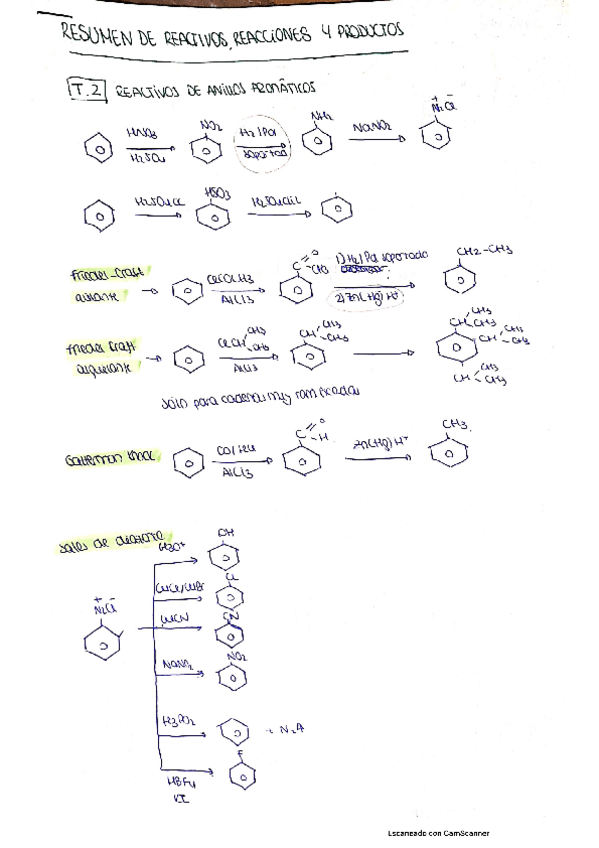 RESUMEN DE REACTIVOS, REACCIONES Y PRODUCTOS
T.2 REACTIVOS DE ANILLOS AROMÁTICOS
HNO3 H2SO4 NO2 H2/Pd soportado NH2 NaNO2 N2Cl
H2SO4 cc HSO3 H2SO4 dil
Friedel-Craft acilante ClCOCH3 AlCl3 C O CH3 1) H2/Pd soportado 2) Zn(Hg) H+ CH2-CH3
Friedel Craft alquilante ClCH CH3 CH3 AlCl3 CH CH3 CH3 CH CH3 CH3 CH CH3 CH3 CH CH3 CH3
sólo para cadenas muy ramificadas
CO/HCl AlCl3 C O H Zn(Hg) H+ CH3
Sales de diazonio
H3O+ OH
CuCl/CuBr Cl
N2Cl CuCN
NaNO2 NO2
H3PO2 + N2
F
HBF4
Escaneado con CamScanner